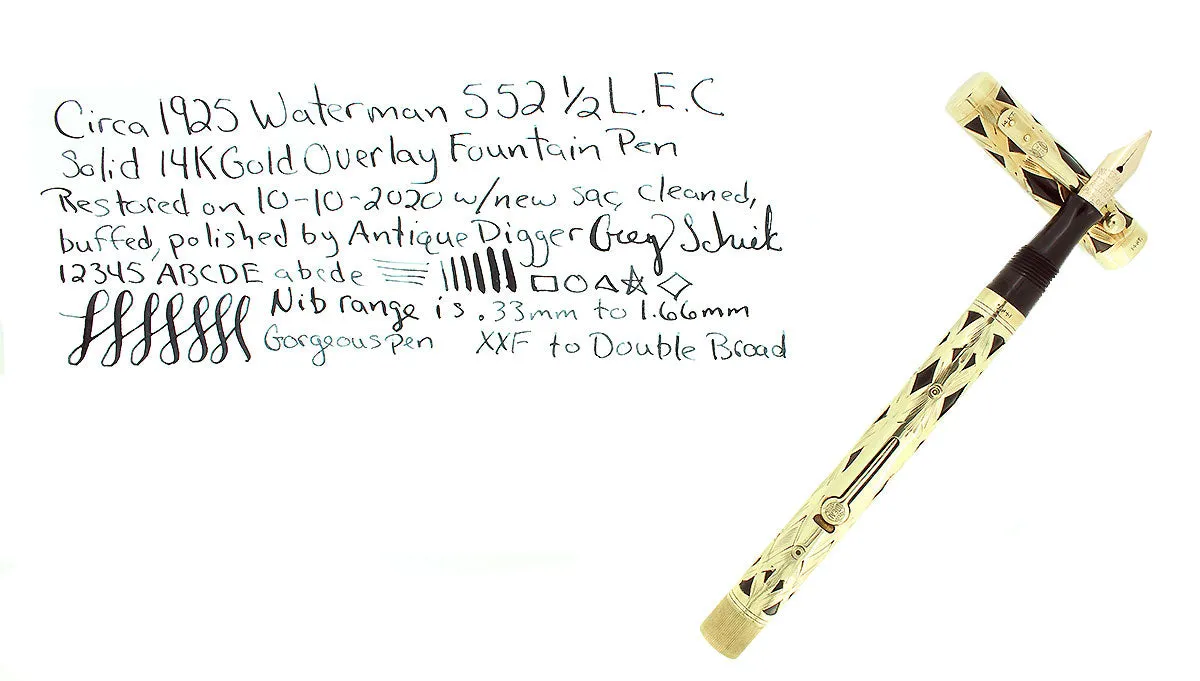 Circa 1925 Waterman 552 1/2 L.E.C
Solid 14K Gold Overlay Fountain Pen
Restored on 10-10-2020 w/new sac, cleaned,
buffed, polished by Antique Digger Greg
12345 ABCDE abcde
Nib range is .33mm to 1.66mm
Gorgeous Pen XXF to Double Broad